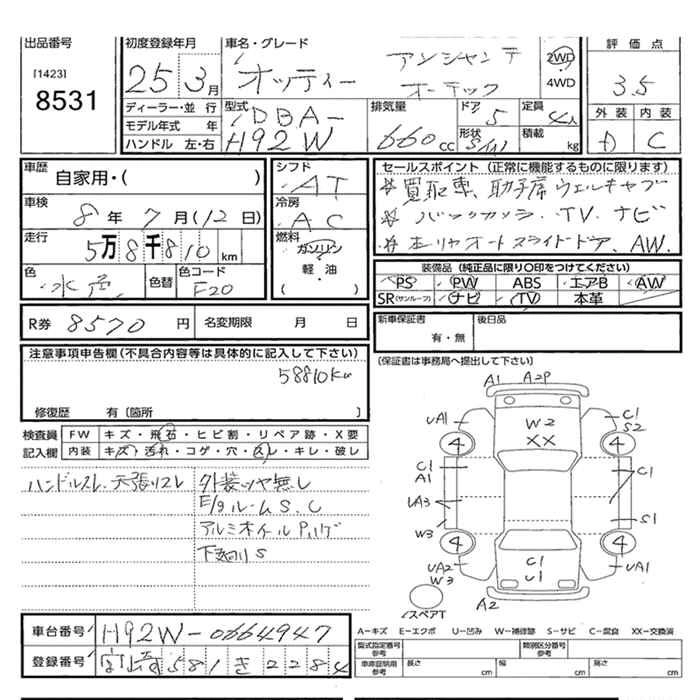 出品番号
[1423]
8531
初度登録年月
25 3月
車名・グレード
オッティー
アンシャンテ
オーテック
2WD
4WD
評価点
3.5
外装 内装
D C
ディーラー・並行
モデル年式 年
ハンドル 左・右
型式
DBA-
H92W
排気量
660cc
ドア
5
形状
S/W
定員
4人
積載
kg
車歴
自家用・( )
車検
8年 7月(12日)
走行
5万8千810km
色
水色
色替
色コード
F20
シフト
AT
冷房
AC
燃料
ガソリン
軽・油
( )
セールスポイント (正常に機能するものに限ります)
買取車、助手席ウェルキャブ
バックカメラ、TV、ナビ
左リヤオートスライドドア、AW.
装備品(純正品に限り〇印をつけてください)
PS PW ABS エアB AW
SR(サンルーフ) ナビ TV 本革
R券 8570円
名変期限 月 日
新車保証書
有・無
後日品
(保証書は事務局へ提出して下さい)
注意事項申告欄(不具合内容等は具体的に記入して下さい)
58810Km
修復歴 有〔箇所 〕
検査員
記入欄
FW キズ・飛石・ヒビ割・リペア跡・X要
内装 キズ・汚れ・コゲ・穴・スレ・キレ・破レ
ハンドルスレ、天張リスレ
外装ツヤ無し
E/gルームS、C
アルミホイールPハゲ
下廻りS
A1 A2P
UA1 W2 C1
XX S2
4 4
C1
A1
C1
UA3
S1
W3
4 4
UA2
W3
C1
U1
UA1
A2
スペアT
車台番号
H92W-0664947
登録番号
581き2284
A−キズ E−エクボ U−凹み W−補修跡 S−サビ C−腐食 XX−交換済
型式指定番号
参考
類別区分番号
参考
車庫証明用
参考
長さ cm
幅 cm
高さ cm